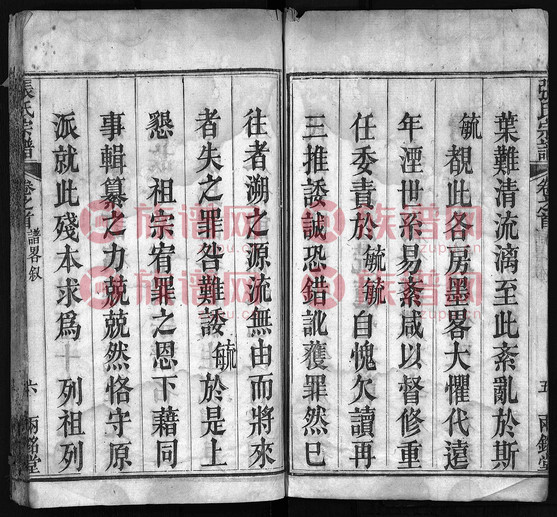 張氏宗譜 卷之首 五 兩銘堂
葉難清流漓至此紊亂於斯
毓覩此各房墨畧大懼代遠
年湮世系易紊咸以督修重
任委責於毓毓自愧欠讀再
三推諉誠恐錯訛獲罪然已
往者溯之源流無由而將來
者失之罪咎難諉毓於是上
懇 祖宗宥罪之恩下藉同
事輯纂之力兢兢然恪守原
派就此殘本求為十列祖列
張氏宗譜 卷之首 譜畧叙 六 兩銘堂
族谱网
zupu.cn